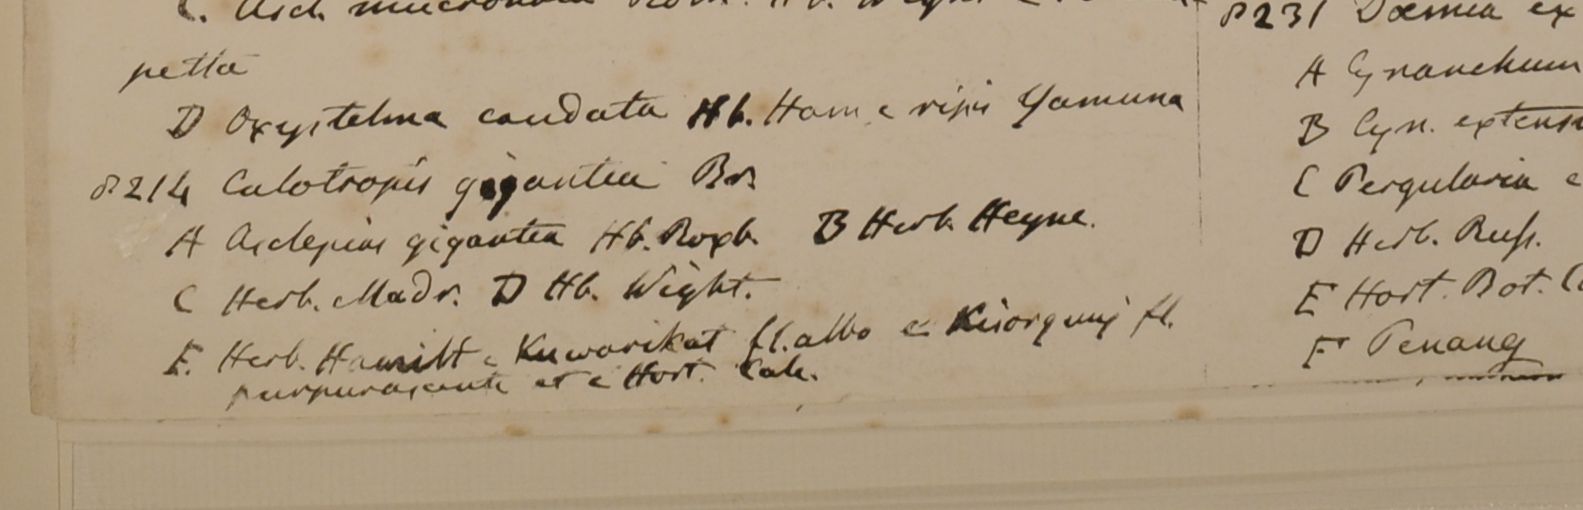 C. Ascl. mucronata
petta
D Oxystelma caudata Hb. Ham. e ripis Yamuna
8214 Calotropis gigantea Br.
A Asclepias gigantea Hb. Roxb. B Herb. Heyne.
C Herb. Madr. D Hb. Wight.
E. Herb. Hamilt e Kuwarikat fl. albo e fl.
purpurascente et e Hort. Calc.
8231 Dæmia ex
A Cynanchum
B Cyn. extens
C Pergularia e
D Herb. Russ.
E Hort. Bot. C
F Penang